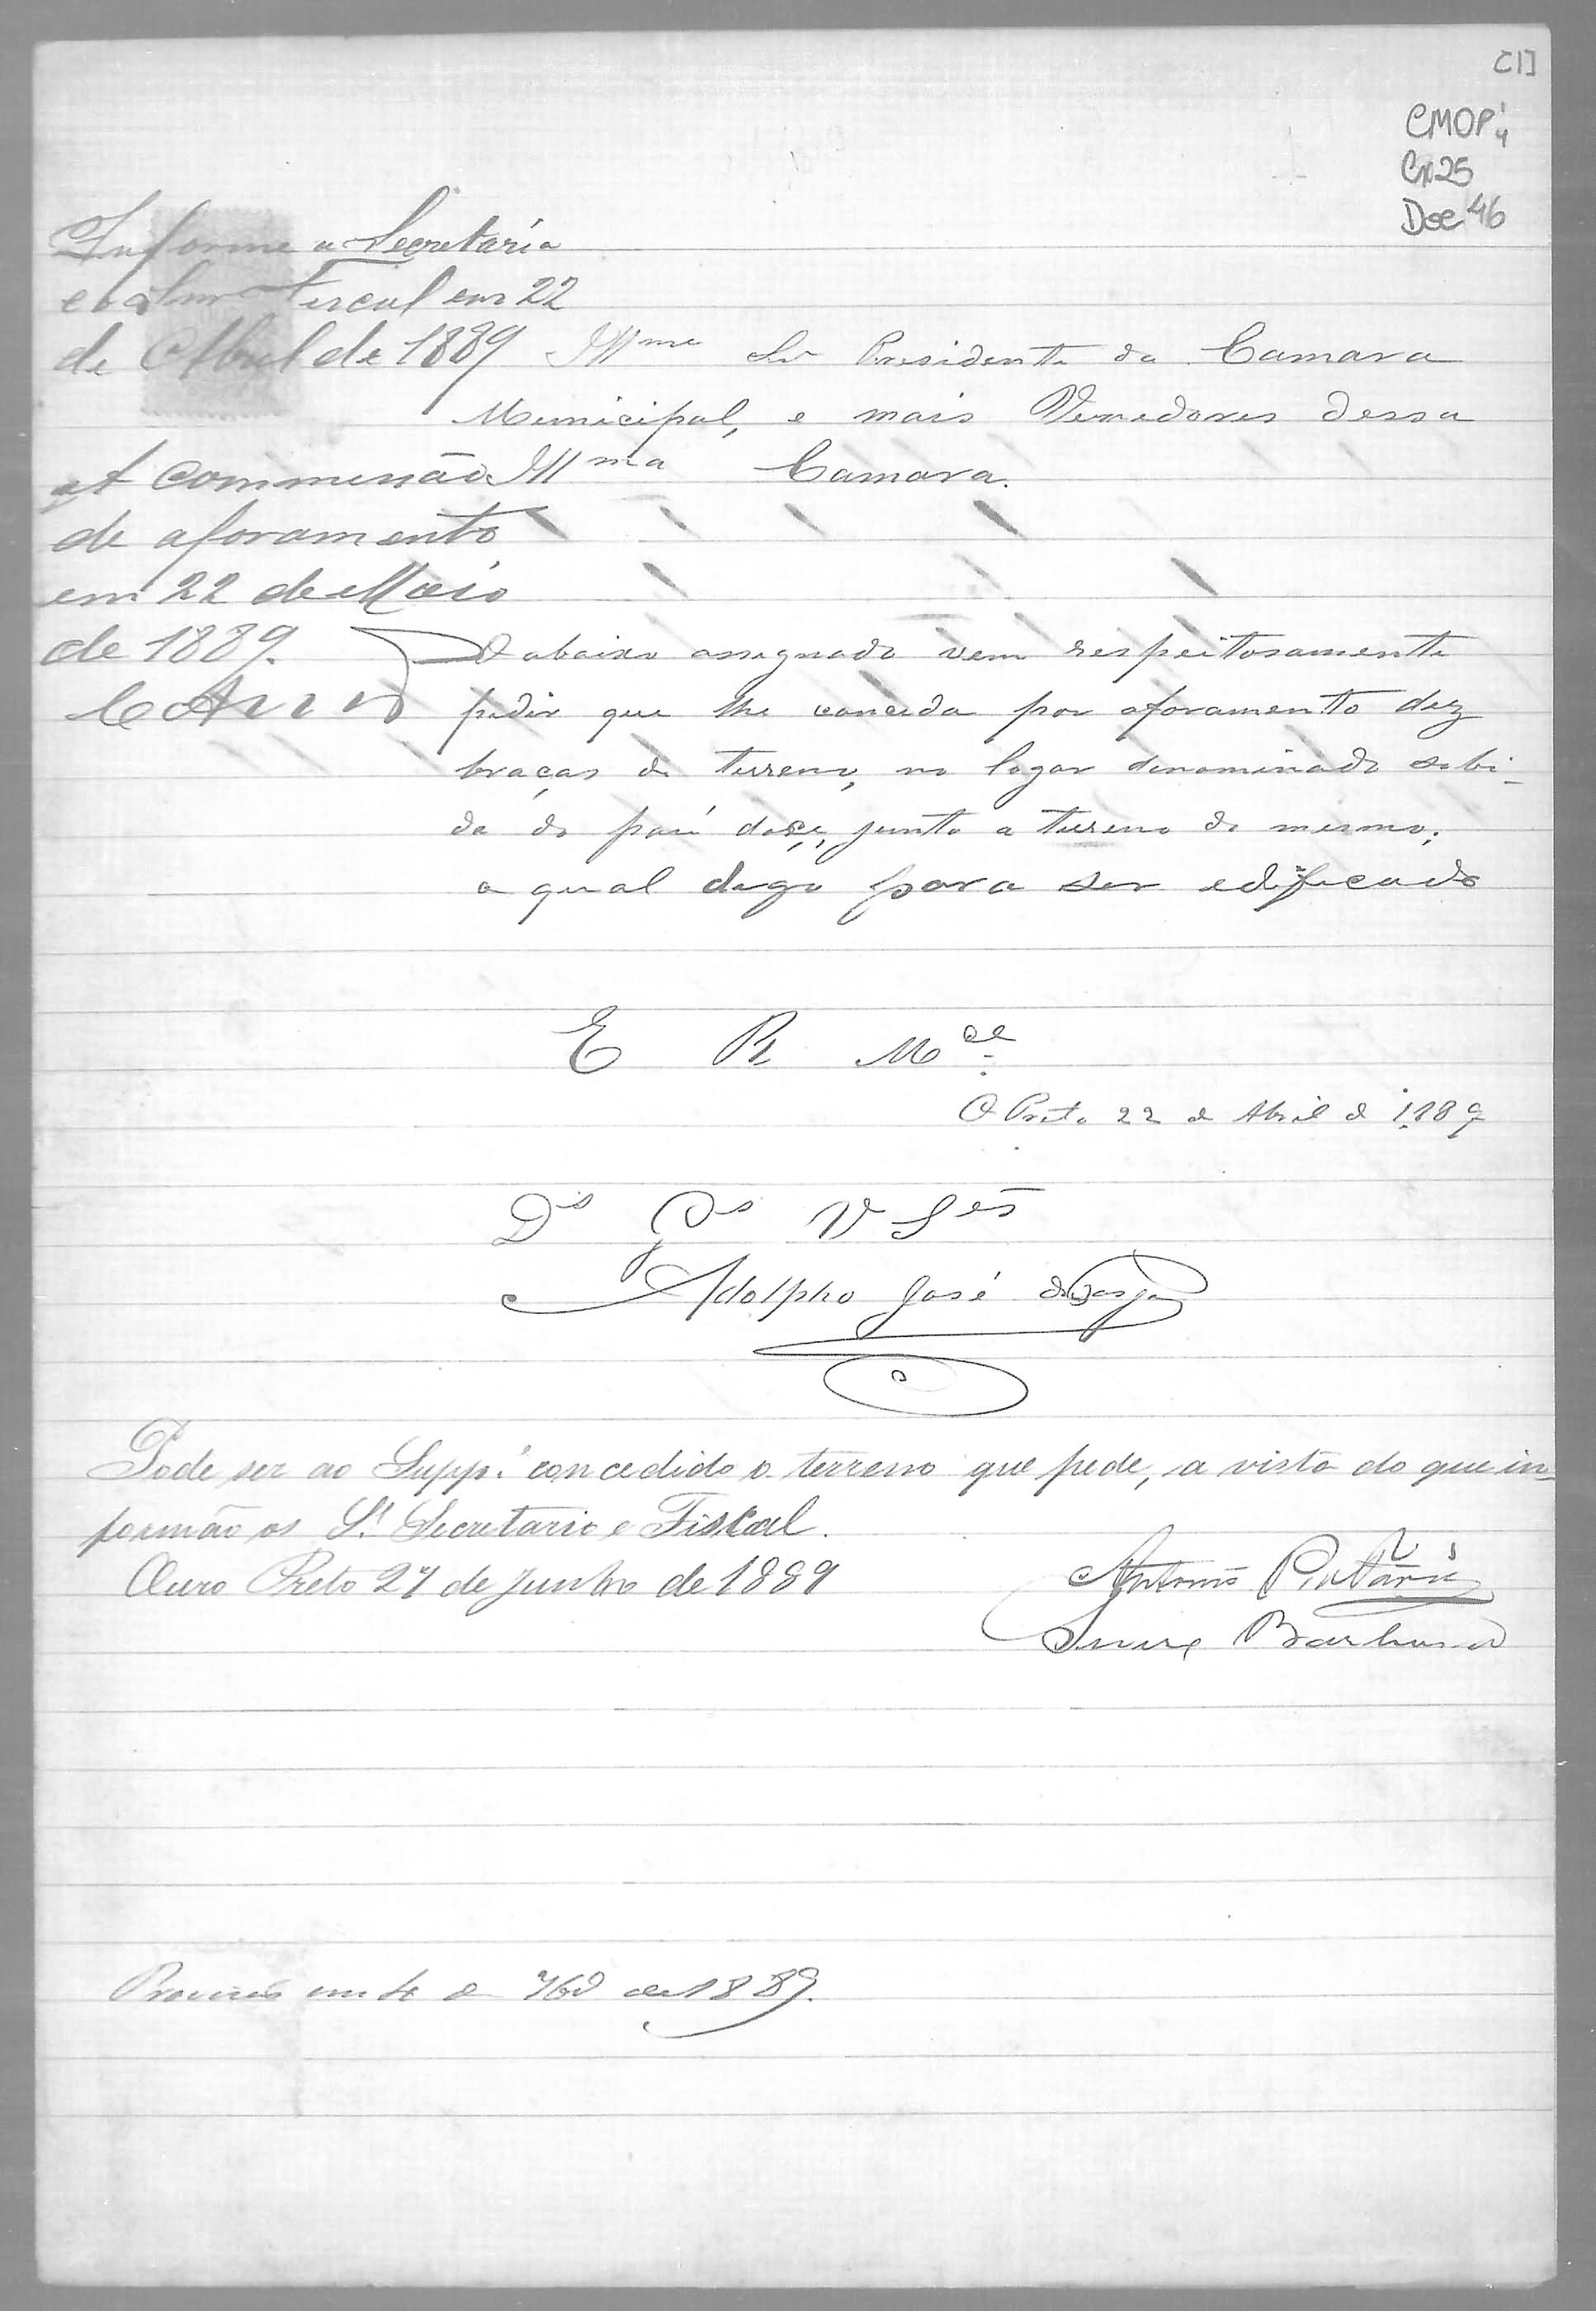 [1]
CMOP
Cx 25
Doc 46
Informe a Secretaria
e o Snr Fiscal em 22
de Abril de 1889
Illmo Snr Presidente da Camara
Municipal, e mais Vereadores dessa
Illma Camara.
At commissão
de aforamento
em 22 de Maio
de 1889.
O abaixo assignado vem respeitosamente
pedir que lhe conceda por aforamento dez
braças de terreno, no logar denominado sobi-
da do páu doce, junto a terreno do mesmo;
a qual digo para ser edificado
E R Mce
O Preto 22 de Abril de 1889
Ds Gs V Sas
Adolpho José
Pode ser ao Suppe concedido o terreno que pede, a vista do que in-
formão os Srs Secretario e Fiscal.
Ouro Preto 27 de Junho de 1889
Antonio
Barbosa
em 4 de 7bro de 1889.